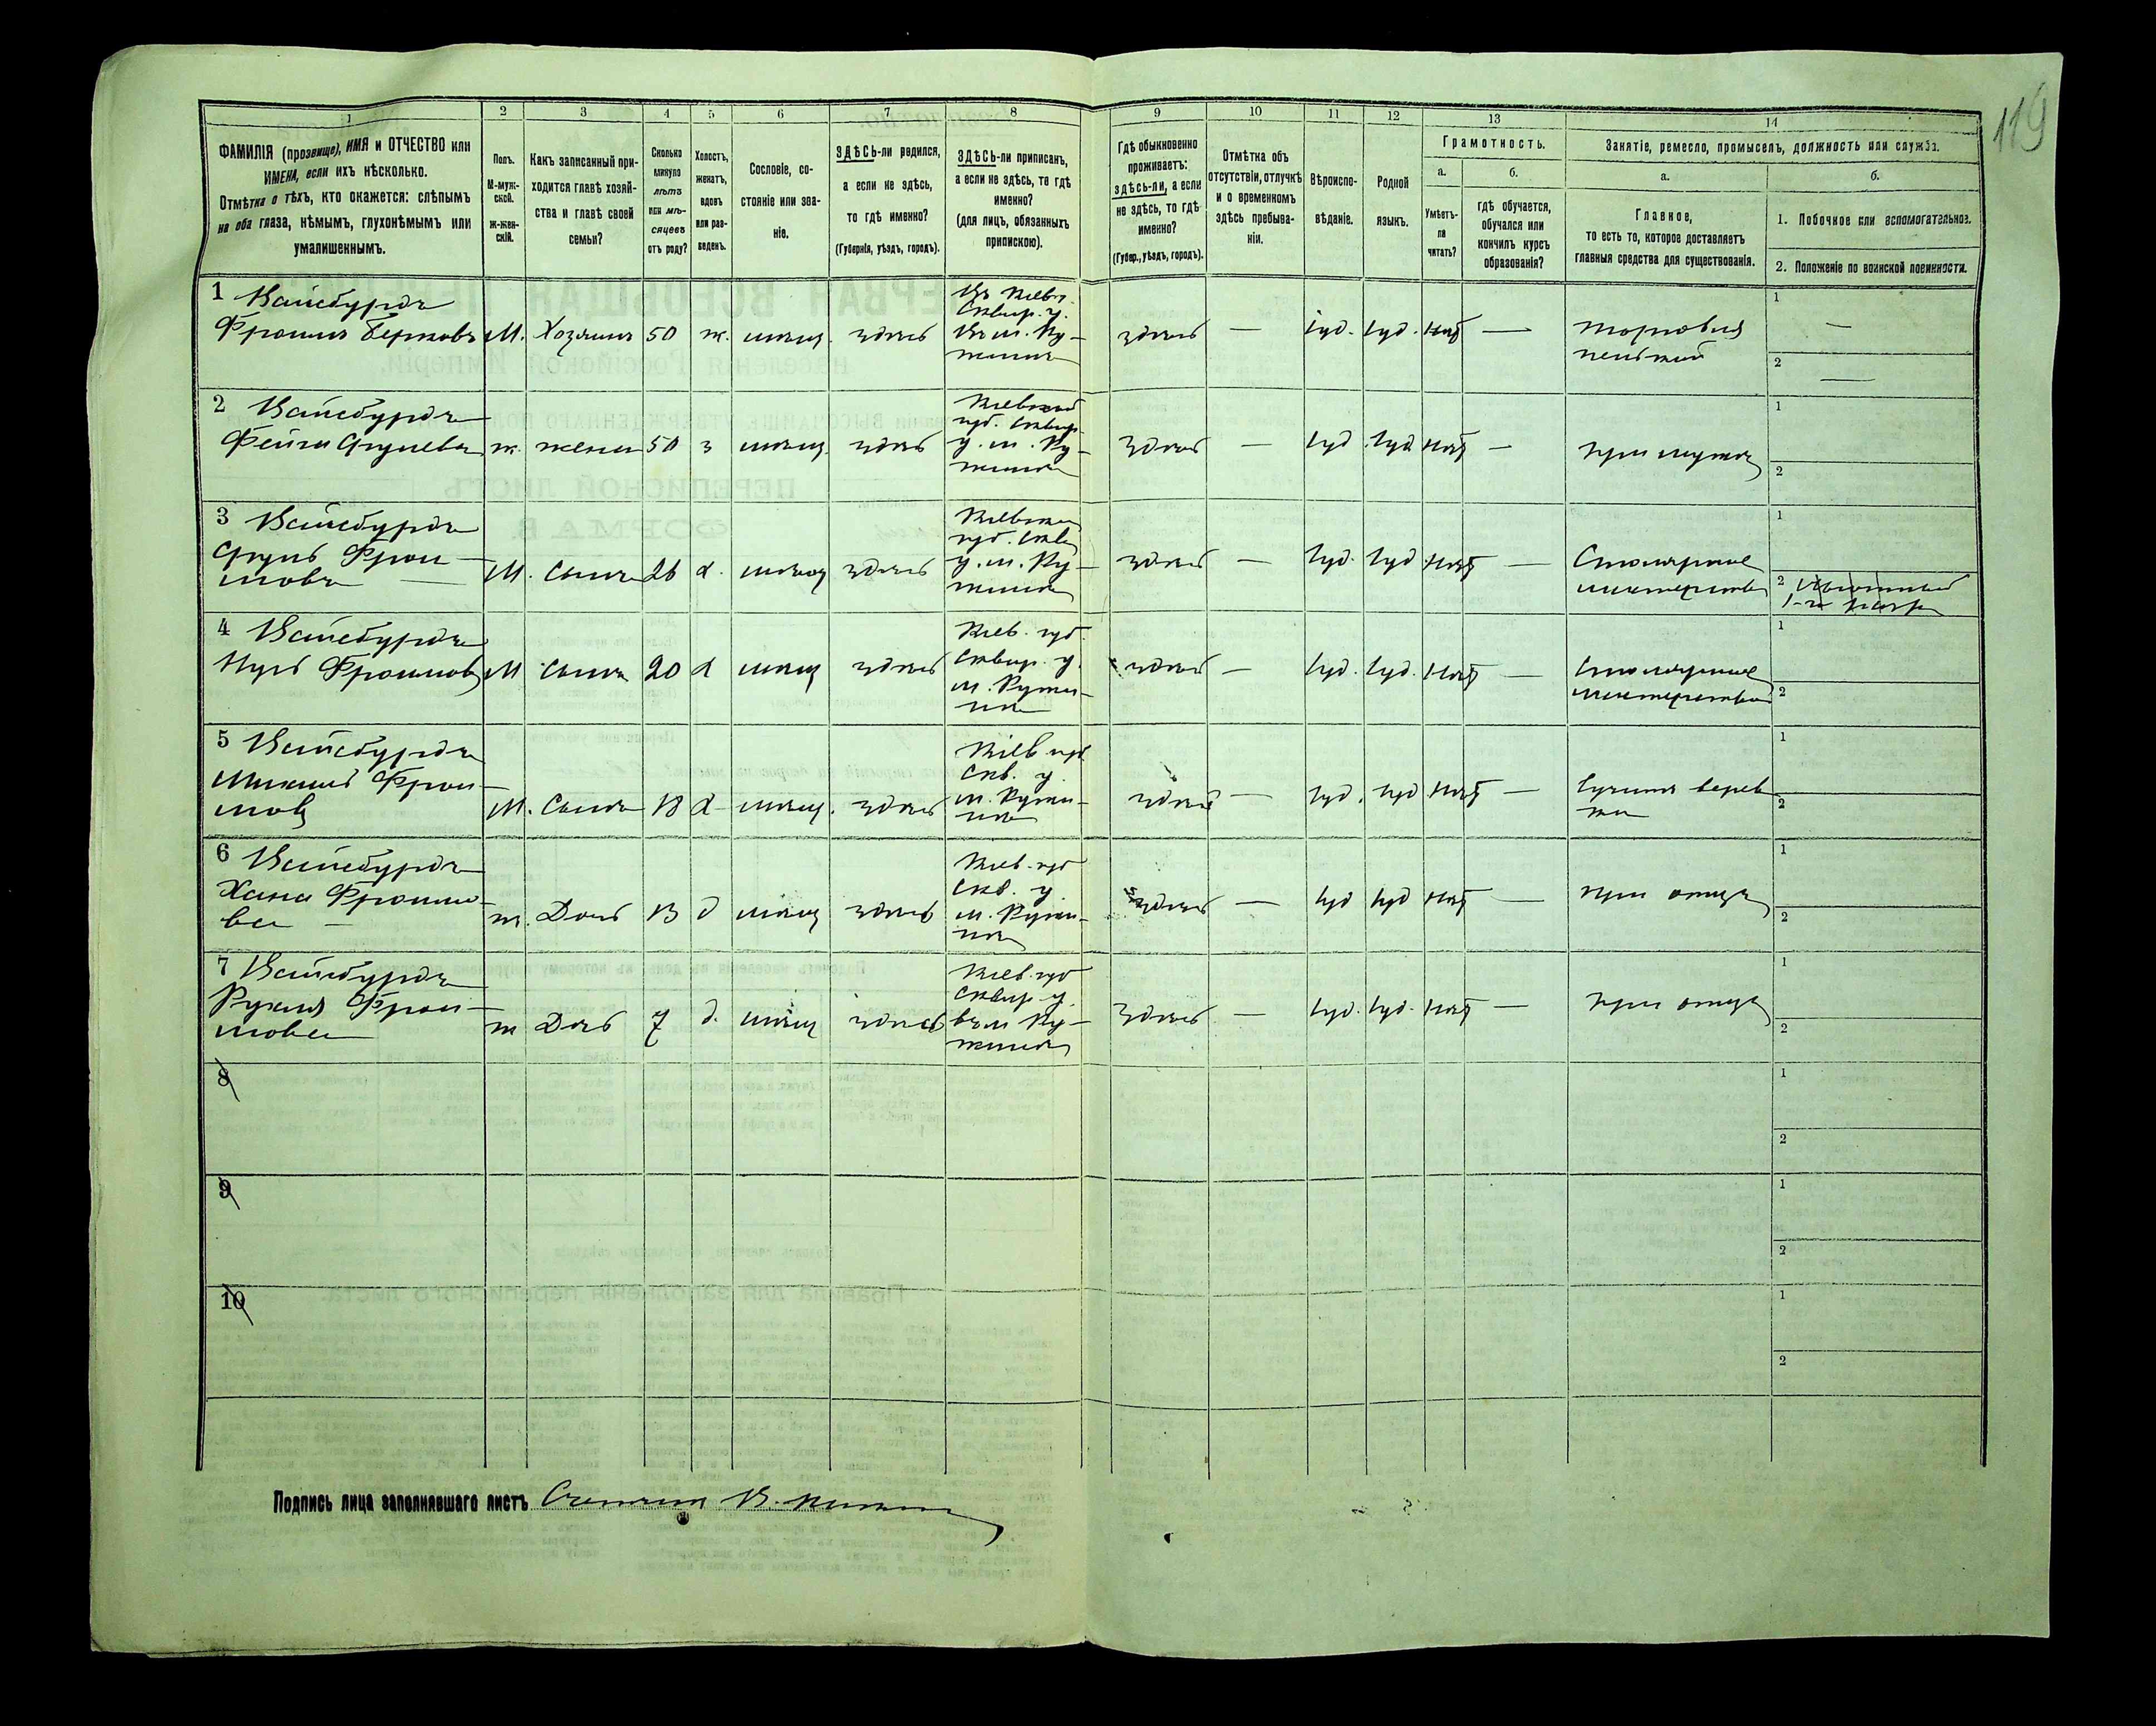 119
1 2 3 4 5 6 7 8 9 10 11 12 13 14
ФАМИЛІЯ (прозвище), ИМЯ и ОТЧЕСТВО или
ИМЕНА, если ихъ нѣсколько.
Отмѣтка о тѣхъ, кто окажется: слѣпымъ
на оба глаза, нѣмымъ, глухонѣмымъ или
умалишеннымъ.
Полъ.
М-муж-
ской.
Ж-жен-
скій.
Какъ записанный при-
ходится главѣ хозяй-
ства и главѣ своей
семьи?
Сколько
минуло
лѣтъ
или мѣ-
сяцевъ
отъ роду?
Холостъ,
женатъ,
вдовъ
или раз-
веденъ.
Сословіе, со-
стояніе или зва-
ніе.
ЗДѢСЬ-ли родился,
а если не здѣсь,
то гдѣ именно?
(Губернія, уѣздъ, городъ).
ЗДѢСЬ-ли приписанъ,
а если не здѣсь, то гдѣ
именно?
(для лицъ, обязанныхъ
припискою).
Гдѣ обыкновенно
проживаетъ:
здѣсь-ли, а если
не здѣсь, то гдѣ
именно?
(Губер., уѣздъ, городъ).
Отмѣтка объ
отсутствіи, отлучкѣ
и о временномъ
здѣсь пребыва-
ніи.
Вѣроиспо-
вѣданіе.
Родной
языкъ.
Грамотность.
а.
Умѣетъ-
ли
читать?
б.
гдѣ обучается,
обучался или
кончилъ курсъ
образованія?
Занятіе, ремесло, промыселъ, должность или служба.
а.
Главное,
то есть то, которое доставляетъ
главныя средства для существованія.
б.
1. Побочное или вспомогательное.
2. Положеніе по воинской повинности.
1 Вайсбурдъ
Фроимъ Берковъ М. Хозяинъ 50 ж. мѣщ. здѣсь
Въ Кіев.
Сквир. у.
Въ м. Ру-
жинѣ
здѣсь — Іуд. Іуд. нѣт —
торговля
пенькой
1 —
2 —
2 Вайсбурдъ
Фейга Срулева ж. жена 50 з мѣщ. здѣсь
Кіевской
губ. Сквир
у. м. Ру-
жинѣ
здѣсь — Іуд. Іуд. нѣт —
при мужѣ
1
2
3 Вайсбурдъ
Сруль Фрои-
мовъ — М. Сынъ 26 х. мѣщ здѣсь
Кіевской
губ. Скви
у. м. Ру-
жинѣ
здѣсь — Іуд. Іуд. нѣт —
Столярное
мастерство
1
2
4 Вайсбурдъ
Нусъ Фроимовъ М Сынъ 20 х мѣщ здѣсь
Кіев. губ.
Сквир. у.
м. Ружи-
нѣ
здѣсь — Іуд. Іуд. нѣт —
Столярное
мастерство
1
2
5 Вайсбурдъ
Фрои-
мовъ М. Сынъ 18 х мѣщ. здѣсь
Кіев. губ
Скв. у.
м. Ружи-
нѣ
здѣсь — Іуд. Іуд нѣт —
Сученіе верев
ки
1
2
6 Вайсбурдъ
Хана Фроимо-
ва — ж. Дочь 13 д мѣщ здѣсь
Кіев. губ
Скв. у.
м. Ружи-
нѣ
здѣсь — Іуд Іуд нѣт —
при отцѣ
1
2
7 Вайсбурдъ
Рухля Фрои-
мова ж Дочь 7 д. мѣщ здѣсь
Кіев. губ
Сквир. у.
въ м Ру-
жинѣ
здѣсь — Іуд. Іуд. нѣт —
при отцѣ
1
2
8
1
2
9
1
2
10
1
2
Подпись лица заполнявшаго листъ Счетчикъ В.